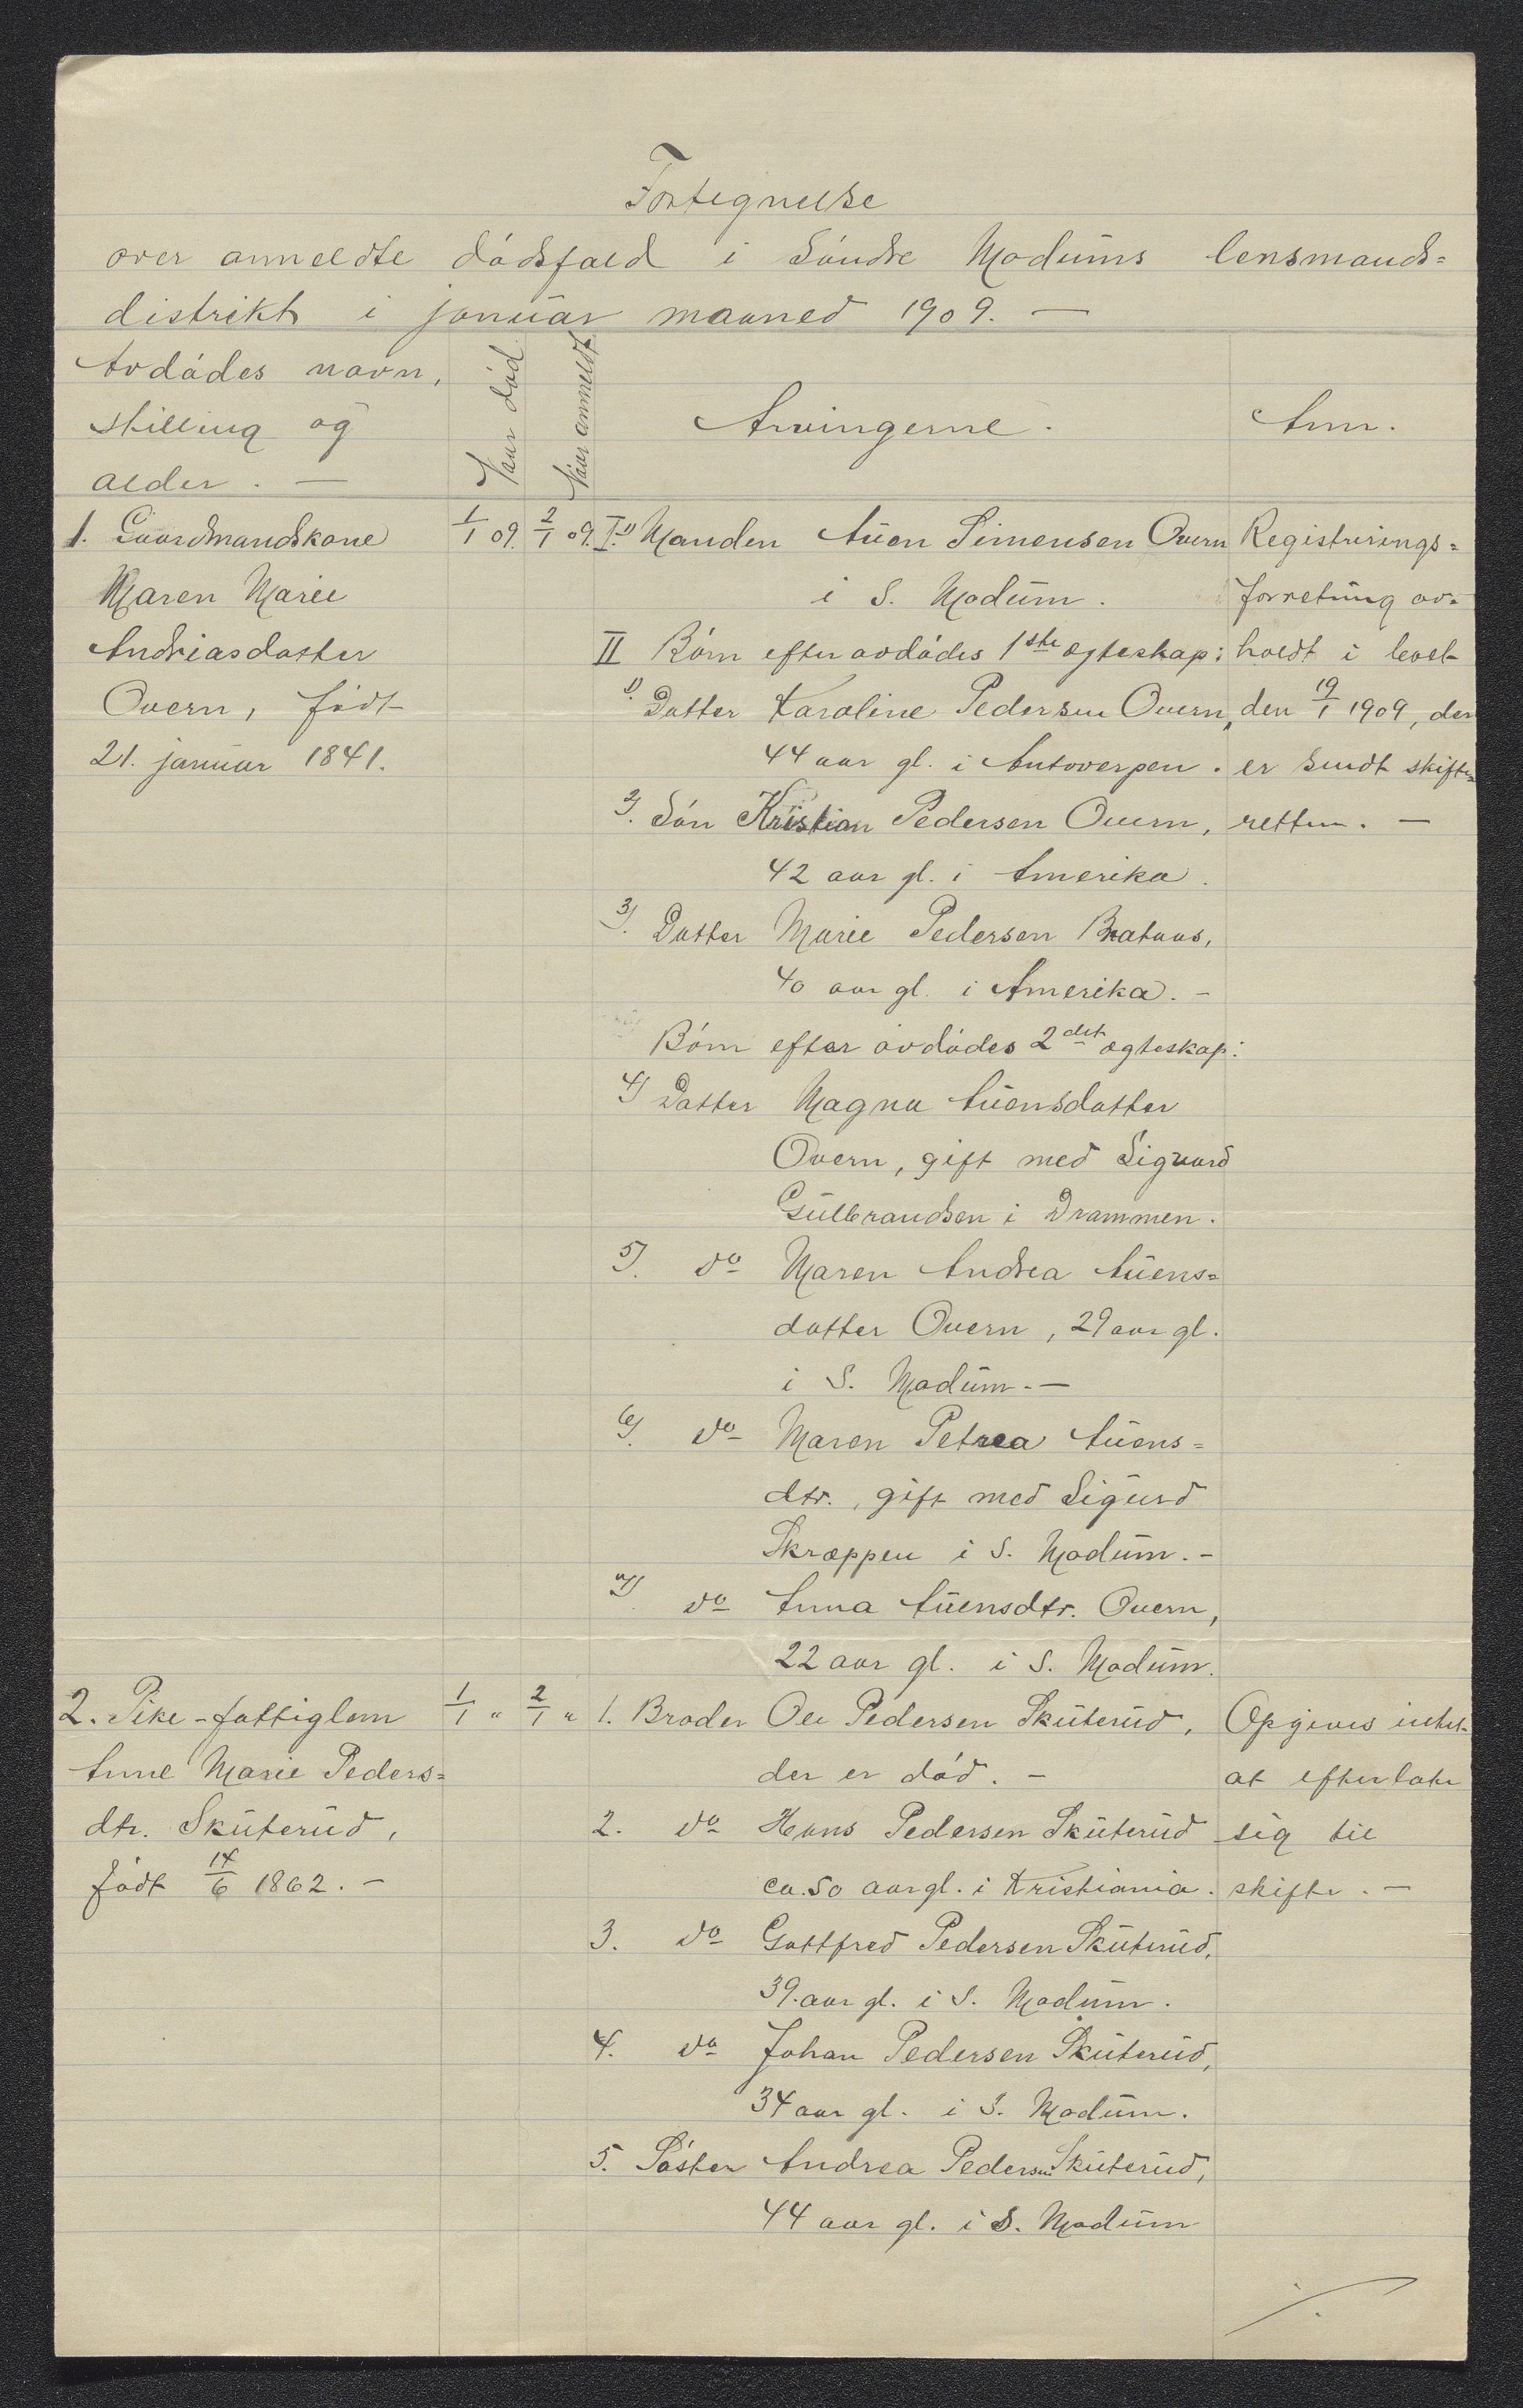 Fortegnelse
over anmeldte dødsfald i Søndre Modums lensmands=
distrikt i januar maaned 1909. —
Avdødes navn,
stilling og
alder. —
Naar død
Naar anmeldt
Arvingerne.
Anm.
1. Gaardmandskone
Maren Marie
Andreasdatter
Overn, født
21. januar 1841.
1/1 09. 2/1 09.
I.1) Manden Auen Simensen Overn
i S. Modum.
II Børn efter avdødes 1ste egteskap:
1). Datter Karoline Pedersen Overn,
44 aar gl. i Antverpen.
2). Søn Kristian Pedersen Overn,
42 aar gl. i Amerika.
3). Datter Marie Pedersen Brataas,
40 aar gl. i Amerika. —
Børn efter avdødes 2det egteskap:
4) Datter Magna Auensdatter
Overn, gift med Sigvard
Gulbrandsen i Drammen.
5). do Maren Andrea Auens=
datter Overn, 29 aar gl.
i S. Modum. —
6). do Maren Petrea Auens=
dtr., gift med Sigurd
Skræppen i S. Modum. —
7). do Anna Auensdtr. Overn,
22 aar gl. i S. Modum.
Registrerings=
forretning av=
holdt i boet
den 19/1 1909, der
er sendt skifte=
retten. —
2. Pike - fattiglem
Anne Marie Peders=
dtr. Skuterud,
født 14/6 1862. —
1/1 " 2/1 "
1. Broder Ole Pedersen Skuterud,
der er død. —
2. do Hans Pedersen Skuterud
ca. 50 aar gl. i Kristiania.
3. do Gottfred Pedersen Skuterud,
39. aar gl. i S. Modum.
4. do Johan Pedersen Skuterud,
34 aar gl. i S. Modum.
5. Søster Andrea Pedersen Skuterud,
44 aar gl. i S. Modum
Opgives intet
at efterlate
sig til
skifte. —